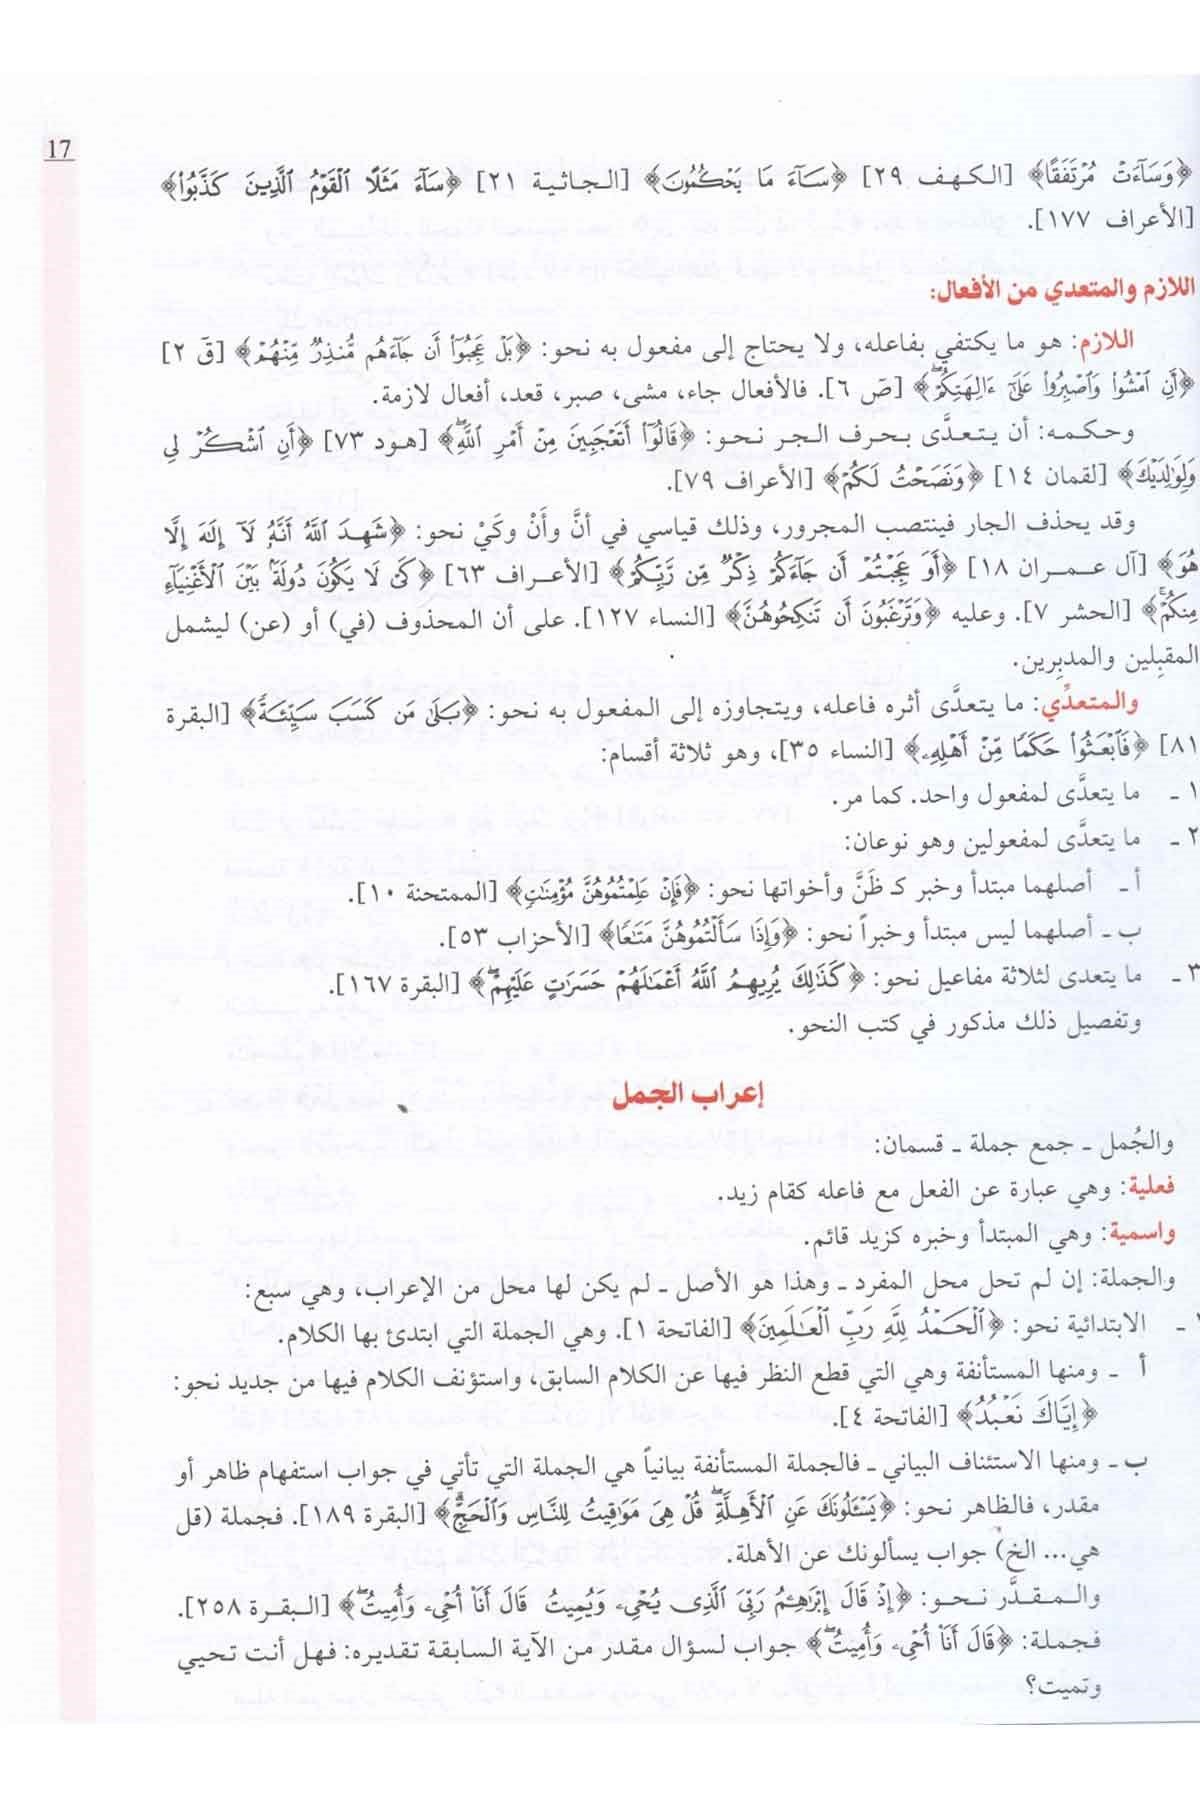 17
﴿وَسَآءَتْ مُرْتَفَقًا﴾ [الكهف ٢٩] ﴿سَآءَ مَا يَحْكُمُونَ﴾ [الجاثية ٢١] ﴿سَآءَ مَثَلًا ٱلْقَوْمُ ٱلَّذِينَ كَذَّبُوا۟﴾
[الأعراف ١٧٧].
اللازم والمتعدي من الأفعال:
اللازم: هو ما يكتفي بفاعله، ولا يحتاج إلى مفعول به نحو: ﴿بَلْ عَجِبُوٓا۟ أَن جَآءَهُم مُّنذِرٌ مِّنْهُمْ﴾ [قَ ٢]
﴿أَنِ ٱمْشُوا۟ وَٱصْبِرُوا۟ عَلَىٰٓ ءَالِهَتِكُمْ ۖ﴾ [صَ ٦]. فالأفعال جاء، مشى، صبر، قعد، أفعال لازمة.
وحكمه: أن يتعدَّى بحرف الجر نحو: ﴿قَالُوٓا۟ أَتَعْجَبِينَ مِنْ أَمْرِ ٱللَّهِ ۖ﴾ [هود ٧٣] ﴿أَنِ ٱشْكُرْ لِى
وَلِوَٰلِدَيْكَ﴾ [لقمان ١٤] ﴿وَنَصَحْتُ لَكُمْ﴾ [الأعراف ٧٩].
وقد يحذف الجار فينتصب المجرور، وذلك قياسي في أنَّ وأَنْ وكَيْ نحو: ﴿شَهِدَ ٱللَّهُ أَنَّهُۥ لَآ إِلَٰهَ إِلَّا
هُوَ﴾ [آل عمران ١٨] ﴿أَوَ عَجِبْتُمْ أَن جَآءَكُمْ ذِكْرٌ مِّن رَّبِّكُمْ﴾ [الأعراف ٦٣] ﴿كَىْ لَا يَكُونَ دُولَةًۢ بَيْنَ ٱلْأَغْنِيَآءِ
مِنكُمْ ۚ﴾ [الحشر ٧]. وعليه ﴿وَتَرْغَبُونَ أَن تَنكِحُوهُنَّ﴾ [النساء ١٢٧]. على أن المحذوف (في) أو (عن) ليشمل
المقبِلين والمدبِرين.
والمتعدِّي: ما يتعدَّى أثره فاعله، ويتجاوزه إلى المفعول به نحو: ﴿بَلَىٰ مَن كَسَبَ سَيِّئَةً﴾ [البقرة
٨١] ﴿فَٱبْعَثُوا۟ حَكَمًا مِّنْ أَهْلِهِۦ﴾ [النساء ٣٥]، وهو ثلاثة أقسام:
١ ـ ما يتعدَّى لمفعول واحد. كما مر.
٢ ـ ما يتعدَّى لمفعولين وهو نوعان:
أ ـ أصلهما مبتدأ وخبر كـ ظَنَّ وأخواتها نحو: ﴿فَإِنْ عَلِمْتُمُوهُنَّ مُؤْمِنَٰتٍ﴾ [الممتحنة ١٠].
ب ـ أصلهما ليس مبتدأ وخبراً نحو: ﴿وَإِذَا سَأَلْتُمُوهُنَّ مَتَٰعًا﴾ [الأحزاب ٥٣].
٣ ـ ما يتعدى لثلاثة مفاعيل نحو: ﴿كَذَٰلِكَ يُرِيهِمُ ٱللَّهُ أَعْمَٰلَهُمْ حَسَرَٰتٍ عَلَيْهِمْ ۖ﴾ [البقرة ١٦٧].
وتفصيل ذلك مذكور في كتب النحو.
إعراب الجمل
والجُمل ـ جمع جملة ـ قسمان:
فعلية: وهي عبارة عن الفعل مع فاعله كقام زيد.
واسمية: وهي المبتدأ وخبره كزيد قائم.
والجملة: إن لم تحل محل المفرد ـ وهذا هو الأصل ـ لم يكن لها محل من الإعراب، وهي سبع:
١ ـ الابتدائية نحو: ﴿ٱلْحَمْدُ لِلَّهِ رَبِّ ٱلْعَٰلَمِينَ﴾ [الفاتحة ١]. وهي الجملة التي ابتدئ بها الكلام.
أ ـ ومنها المستأنفة وهي التي قطع النظر فيها عن الكلام السابق، واستؤنف الكلام فيها من جديد نحو:
﴿إِيَّاكَ نَعْبُدُ﴾ [الفاتحة ٤].
ب ـ ومنها الاستئناف البياني ـ فالجملة المستأنفة بيانياً هي الجملة التي تأتي في جواب استفهام ظاهر أو
مقدر، فالظاهر نحو: ﴿يَسْـَٔلُونَكَ عَنِ ٱلْأَهِلَّةِ ۖ قُلْ هِىَ مَوَٰقِيتُ لِلنَّاسِ وَٱلْحَجِّ ۗ﴾ [البقرة ١٨٩]. فجملة (قل
هي... الخ) جواب يسألونك عن الأهلة.
والمقدَّر نحو: ﴿إِذْ قَالَ إِبْرَٰهِـۧمُ رَبِّىَ ٱلَّذِى يُحْىِۦ وَيُمِيتُ قَالَ أَنَا۠ أُحْىِۦ وَأُمِيتُ ۖ﴾ [البقرة ٢٥٨].
فجملة: ﴿قَالَ أَنَا۠ أُحْىِۦ وَأُمِيتُ ۖ﴾ جواب لسؤال مقدر من الآية السابقة تقديره: فهل أنت تحيي
وتميت؟